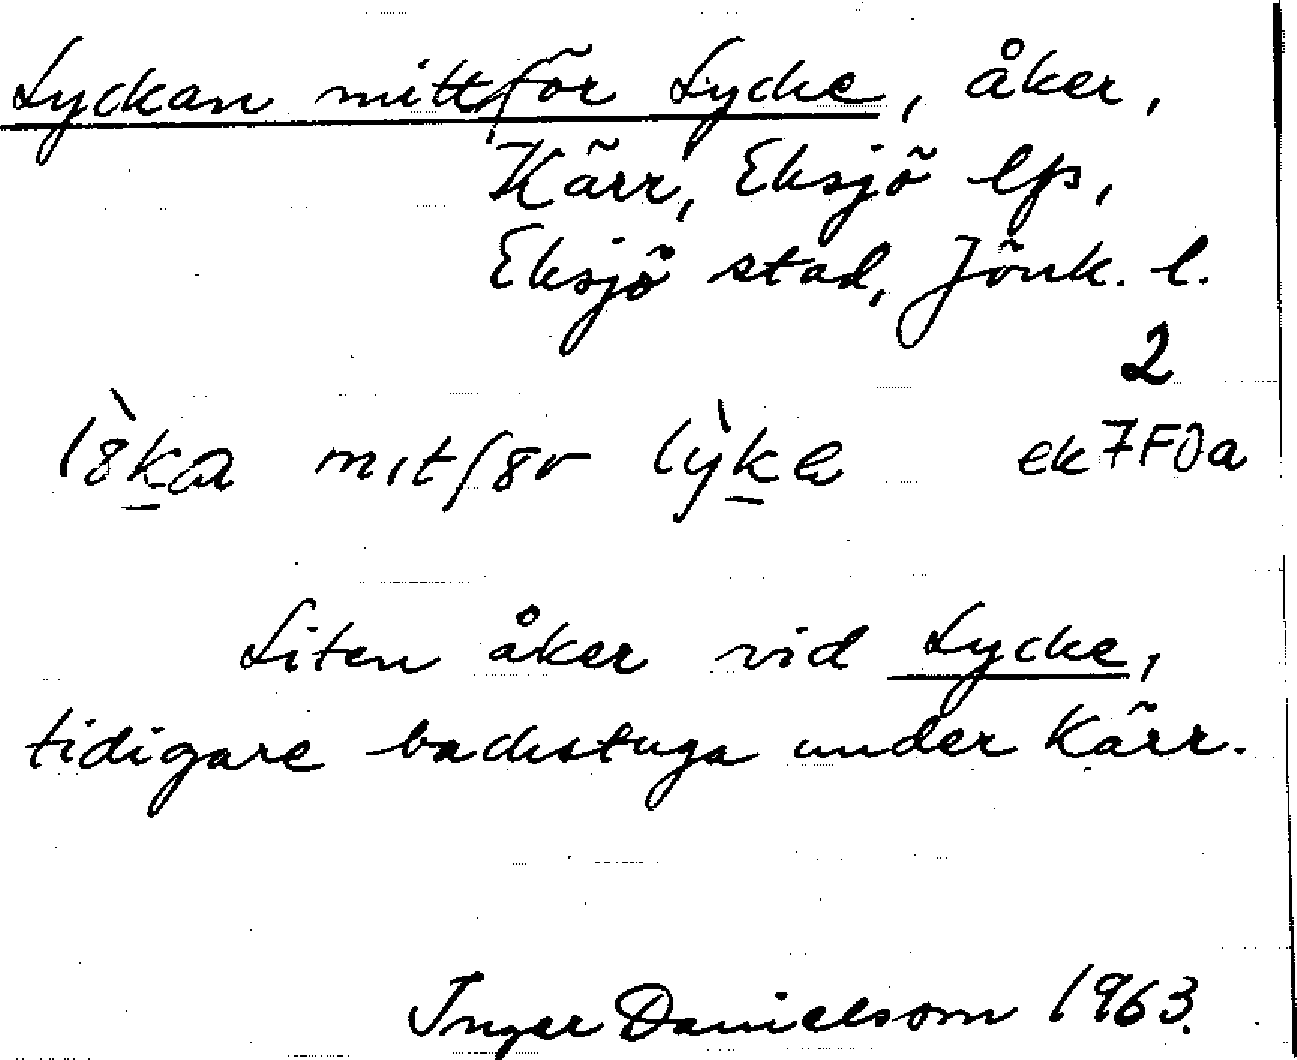 Lyckan mittför Lycke, åker,
Kärr, Eksjö lfs,
Eksjö stad, Jönk. l.
2
l8̀ka mɩtf8r lỳke ek 7F0a
Liten åker vid Lycke,
tidigare backstuga under Kärr.
Inger Danielsom 1963.